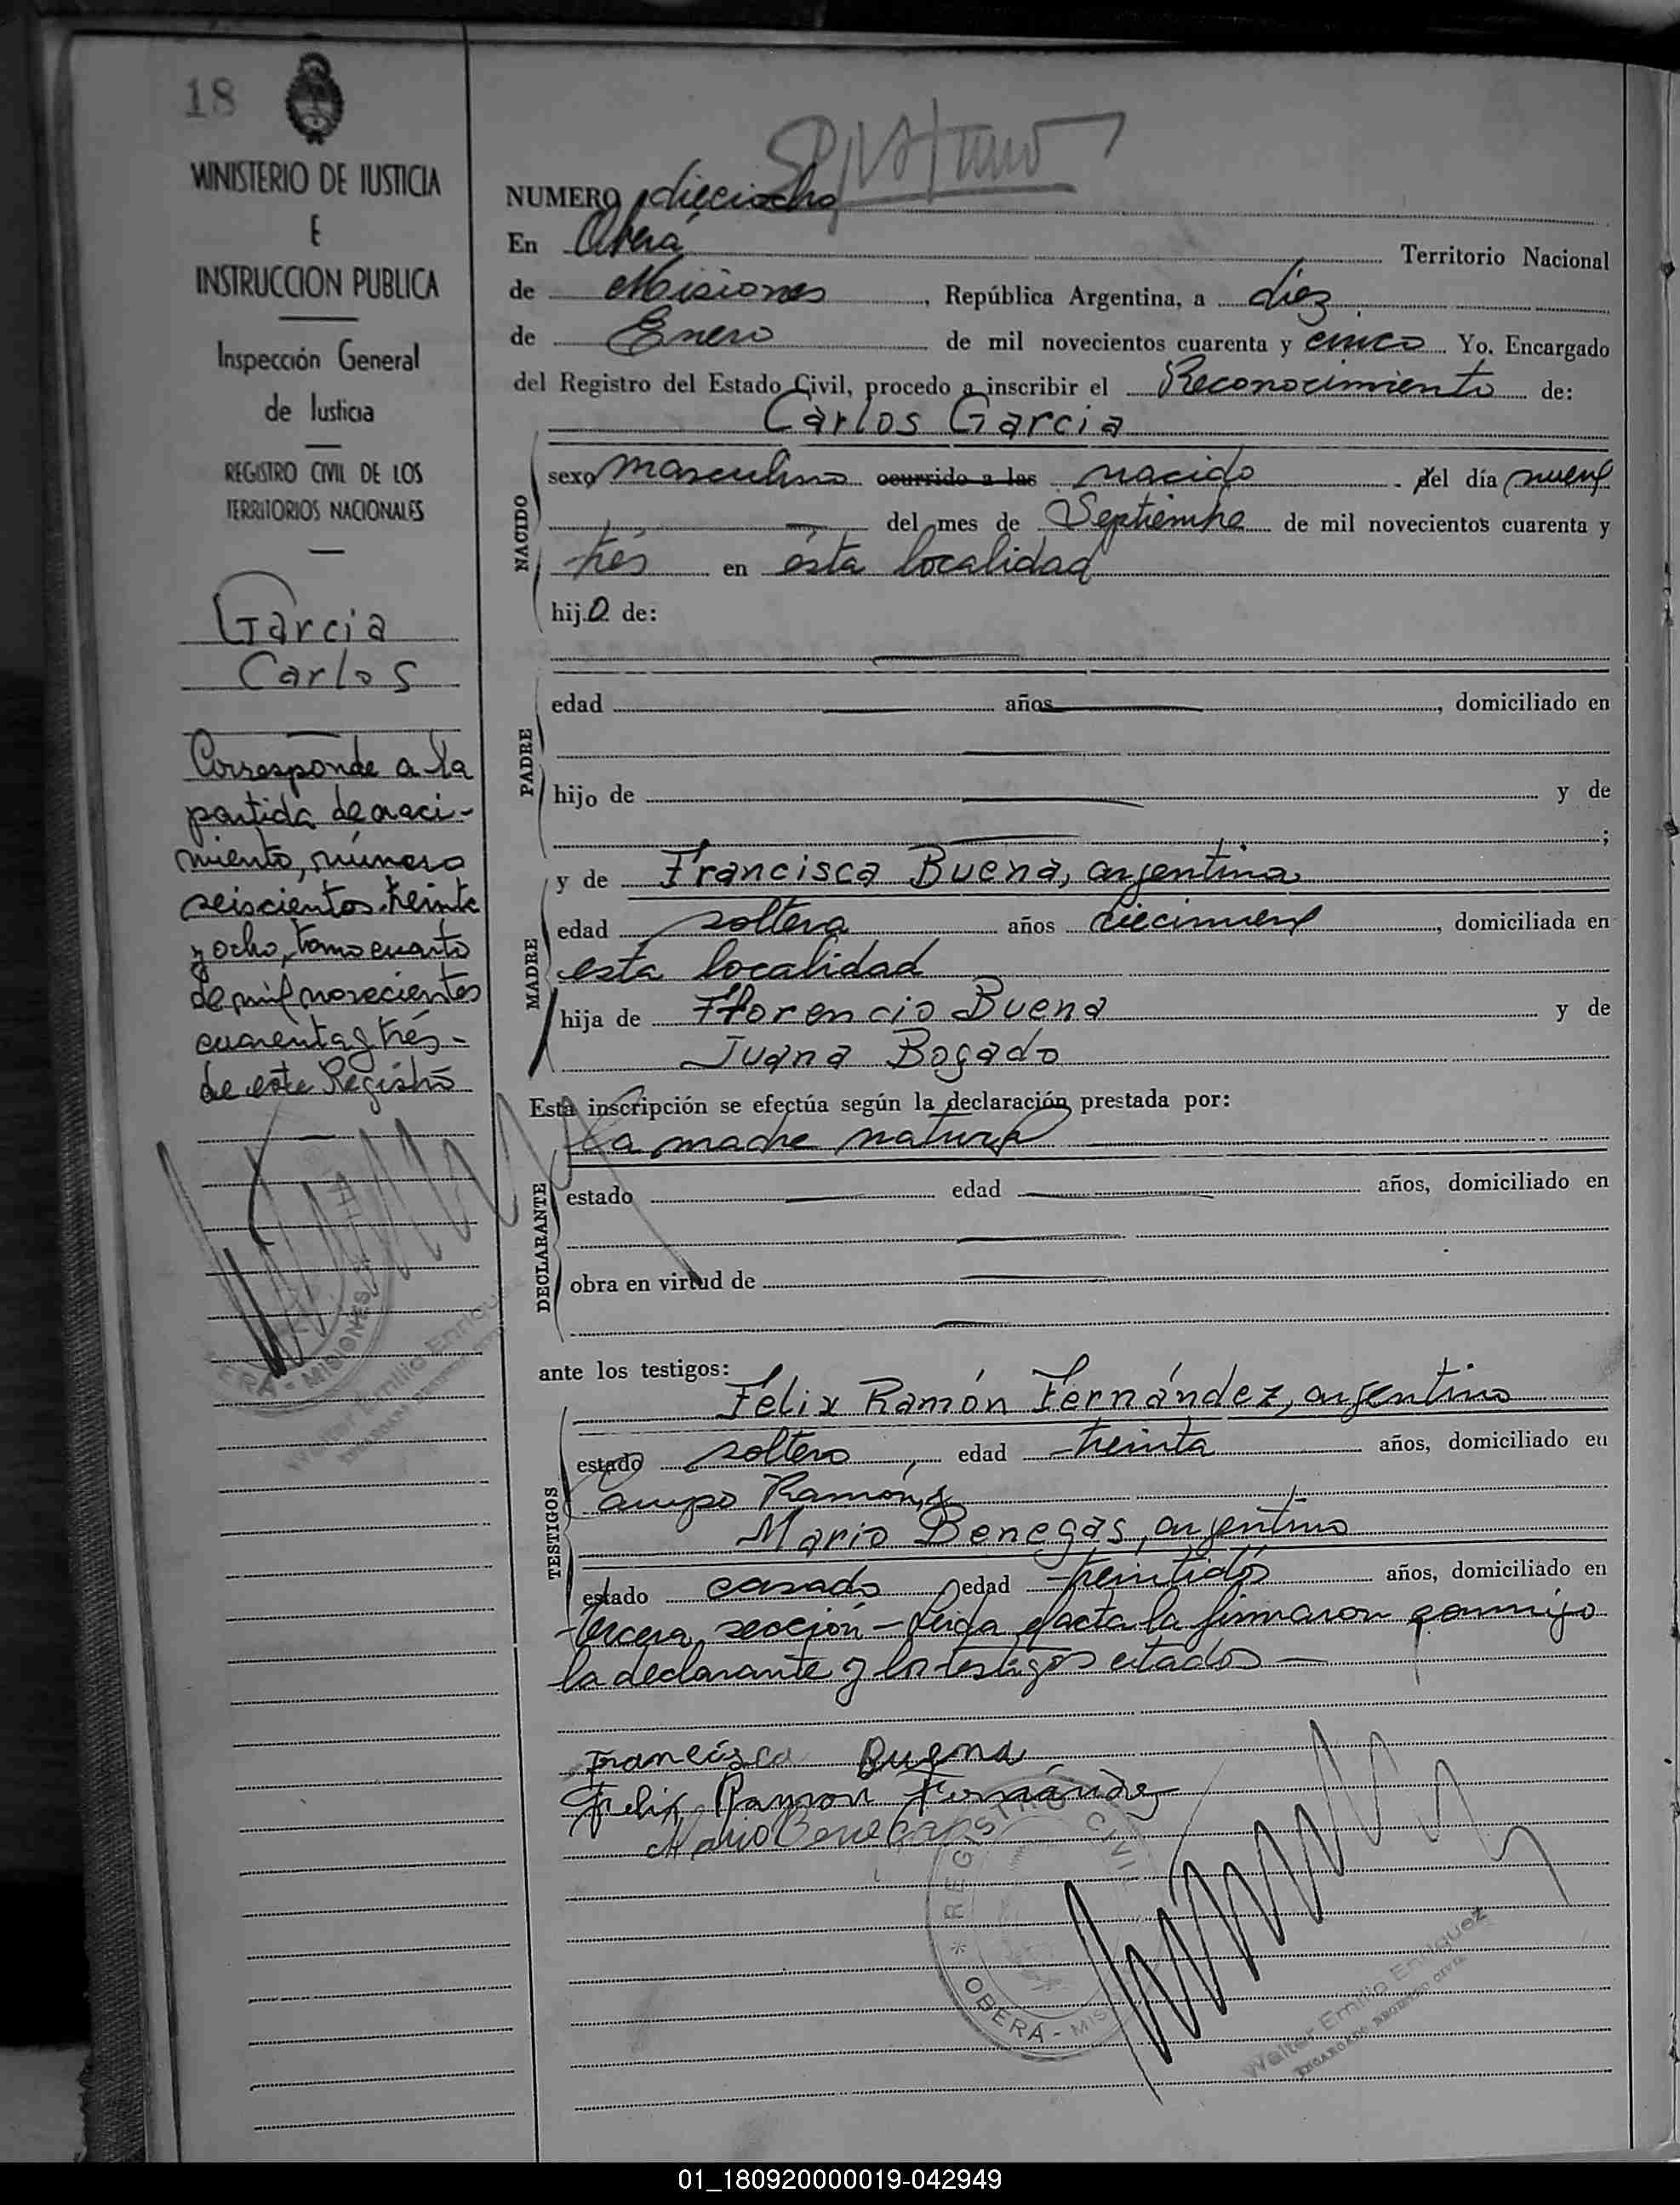 18
MINISTERIO DE JUSTICIA
E
INSTRUCCION PUBLICA
Inspección General
de Justicia
REGISTRO CIVIL DE LOS
TERRITORIOS NACIONALES
Garcia
Carlos
Corresponde a la
partida de naci-
miento, número
seiscientos treinta
y ocho, tomo cuarto
de mil novecientos
cuarenta y trés-
de este Registro
ERA - MISIONES
Walter Emilio Enriquez
NUMERO dieciocho
En Oberá Territorio Nacional
de Misiones, República Argentina, a diez
de Enero de mil novecientos cuarenta y cinco Yo. Encargado
del Registro del Estado Civil, procedo a inscribir el Reconocimiento de:
Carlos Garcia
NACIDO
sexo masculino ocurrido a las nacido del día nueve
del mes de Septiembre de mil novecientos cuarenta y
trés en ésta localidad
hijo de:
PADRE
edad años, domiciliado en
hijo de y de
;
MADRE
y de Francisca Buena, argentina
edad soltera años diecinueve, domiciliada en
esta localidad
hija de Florencio Buena y de
Juana Bogado
Esta inscripción se efectúa según la declaración prestada por:
La madre natural
DECLARANTE
estado edad años, domiciliado en
obra en virtud de
ante los testigos:
TESTIGOS
Félix Ramón Fernández, argentino
estado soltero edad treinta años, domiciliado en
Campo Ramón, y
Mario Benegas, argentino
estado casado edad treintidós años, domiciliado en
tercera sección - Leida el acta la firmaron conmigo
la declarante y los testigos citados -
Francisca Buena
Felix Ramon Fernández
Mario Benegas
REGISTRO CIVIL
* OBERA - MIS
Walter Emilio Enriquez
ENCARGADO REGISTRO CIVIL
01_180920000019-042949